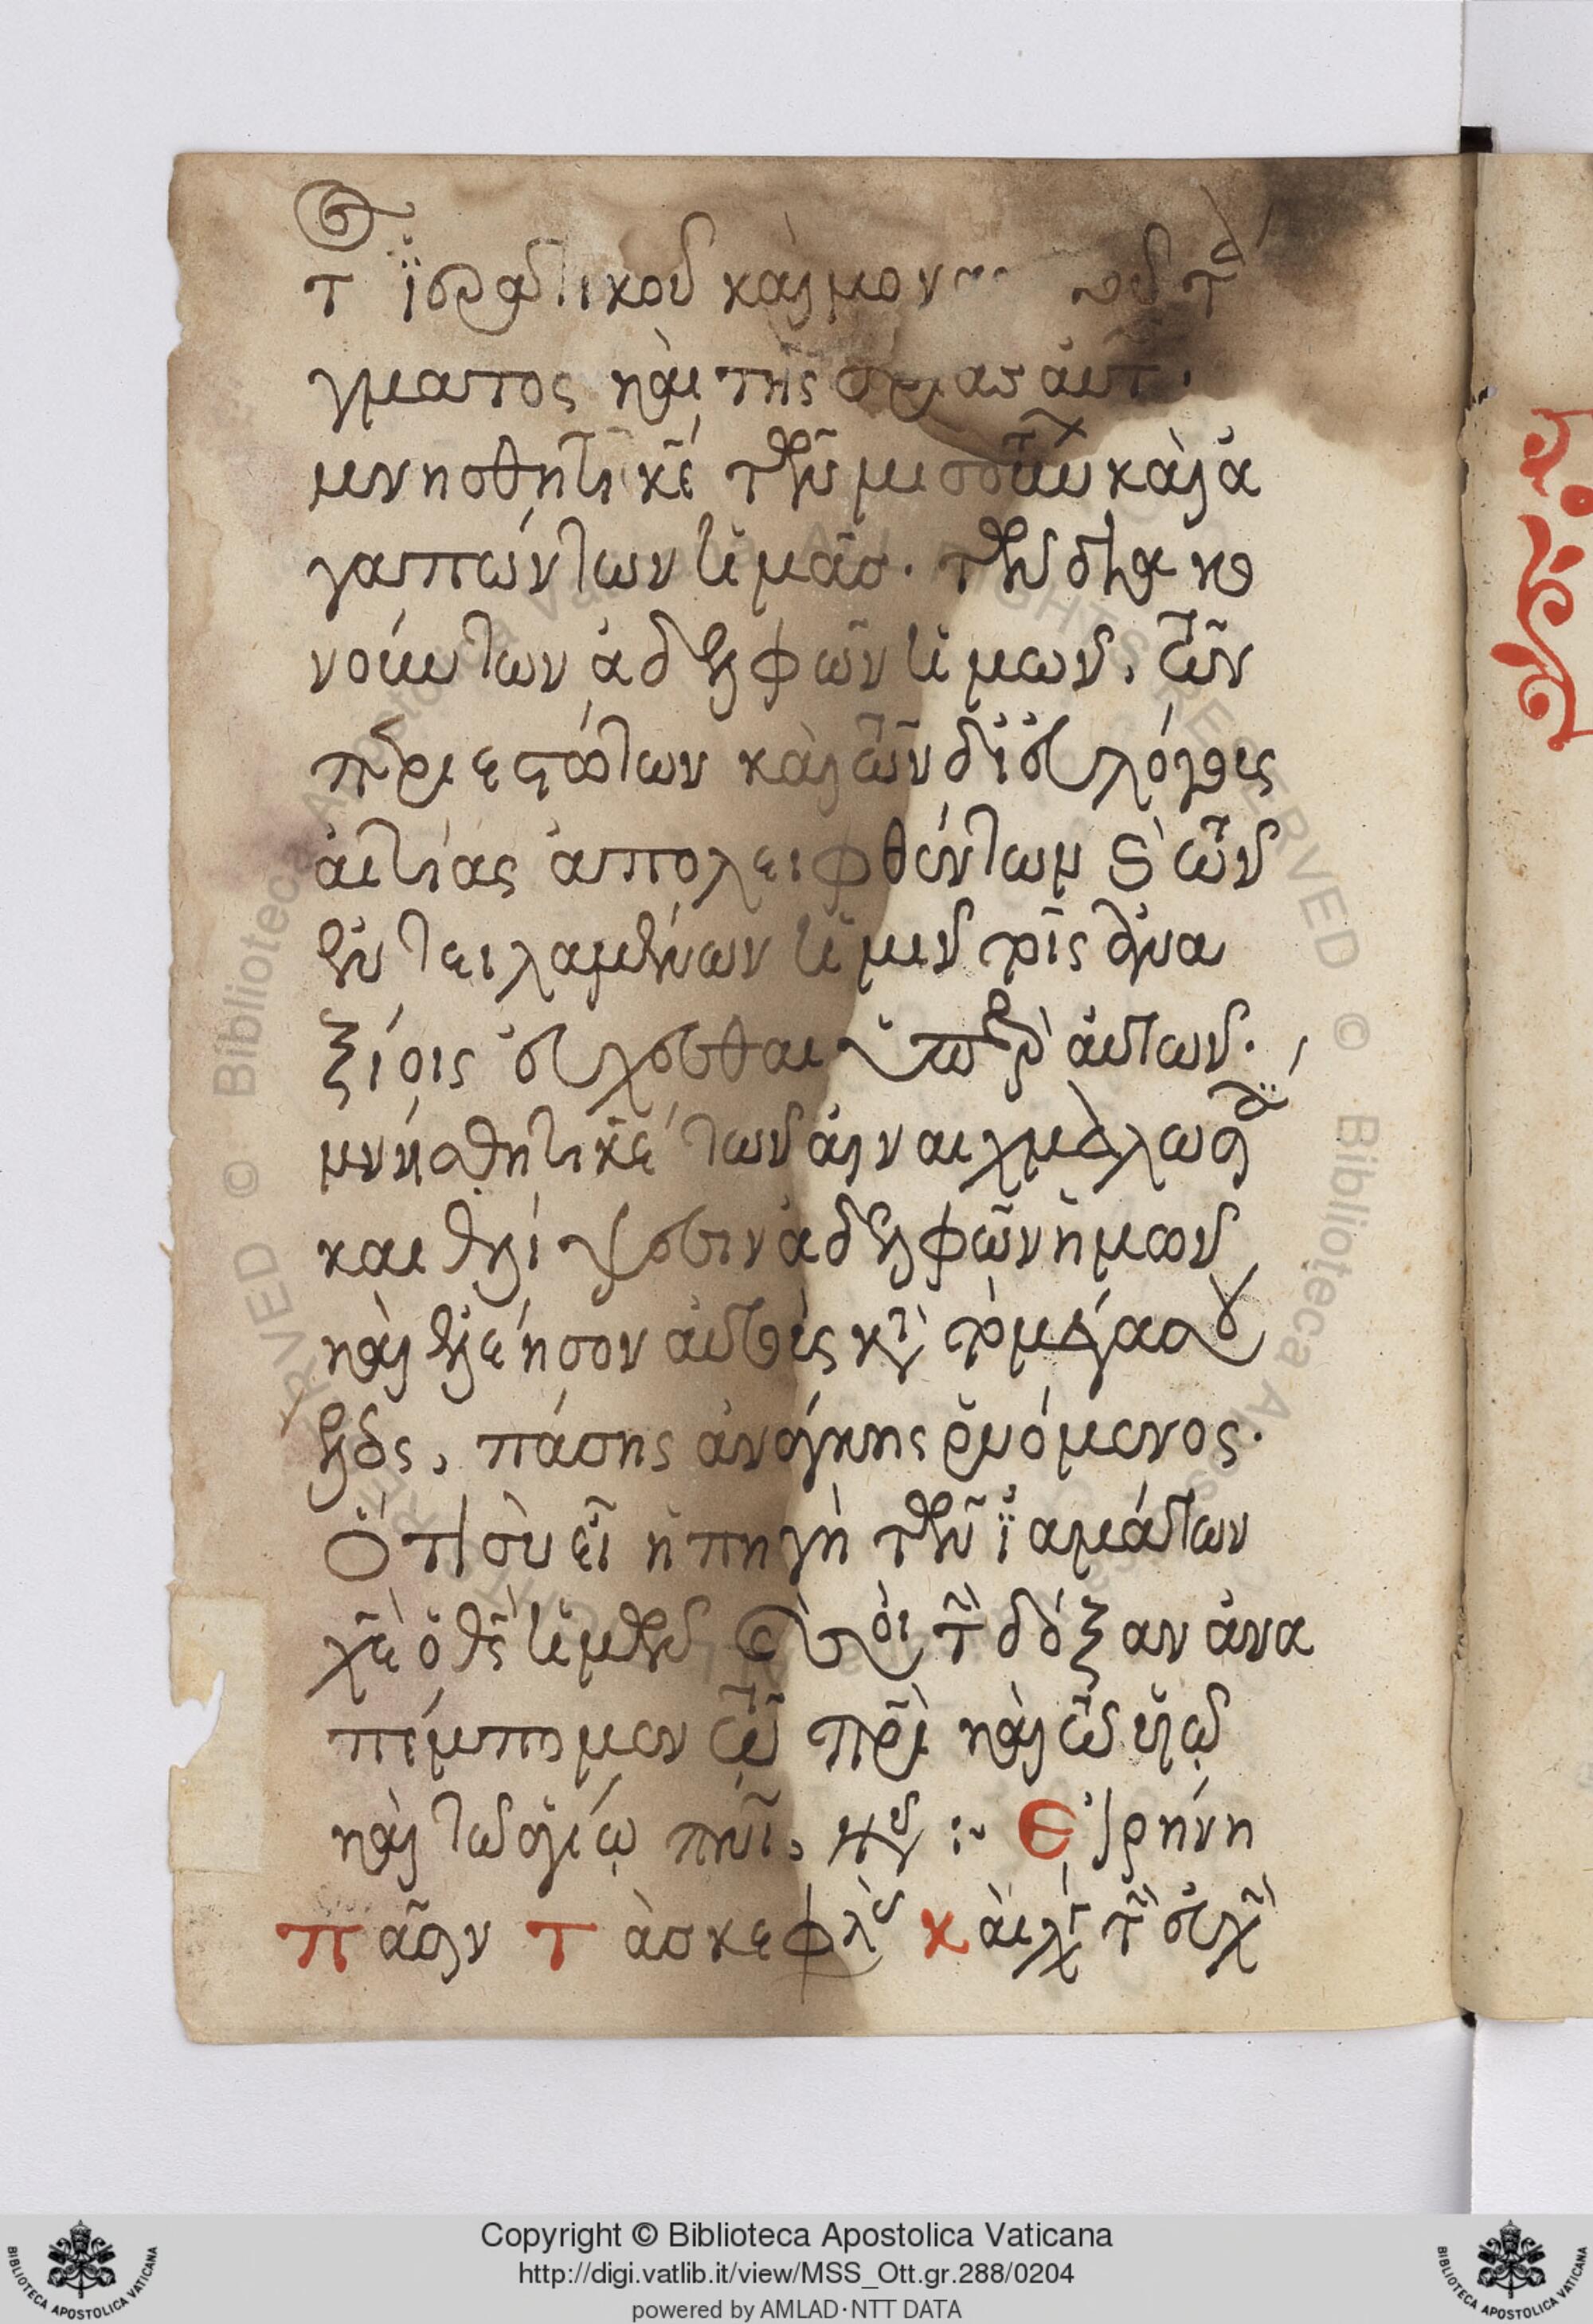 τ ἱερατικοῦ καὶ μον
γματος καὶ τῆς
μνήσθητι κε τῶν μισούντων καὶ ἀ
γαπώντων ἡμᾶς. τῶν διακο
νούντων ἀδελφῶν ἡμῶν. τῶν
περιεστώτων καὶ τῶν δι' εὐλόγους
αἰτίας ἀπολειφθέντων καὶ τῶν
ἐντειλαμένων ἡμῖν τοῖς ἀνα
ξίοις εὔχεσθαι ὑπὲρ αὐτῶν.
μνήσθητι κε τῶν ἐν αἰχμαλωσ
καὶ θλίψεσιν ἀδελφῶν ἡμῶν
καὶ ἐλέησον αὐτοὺς κτ τὸ μέγα σου
ἔλεος, πάσης ἀνάγκης ῥυόμενος.
Ὅτι σὺ εἶ ἡ πηγὴ τῶν ἰαμάτων
χε ὁ θς ἡμῶν καὶ σοὶ τ δόξαν ἀνα
πέμπομεν τῶ πρι καὶ τῶ υἱῷ
καὶ τῶ ἁγίῳ πνι, κ νυ :~ Εἰρήνη
πᾶσιν τ ἀσ κεφλ κ αι λγ τ εὐχ
Copyright © Biblioteca Apostolica Vaticana
http://digi.vatlib.it/view/MSS_Ott.gr.288/0204
powered by AMLAD·NTT DATA